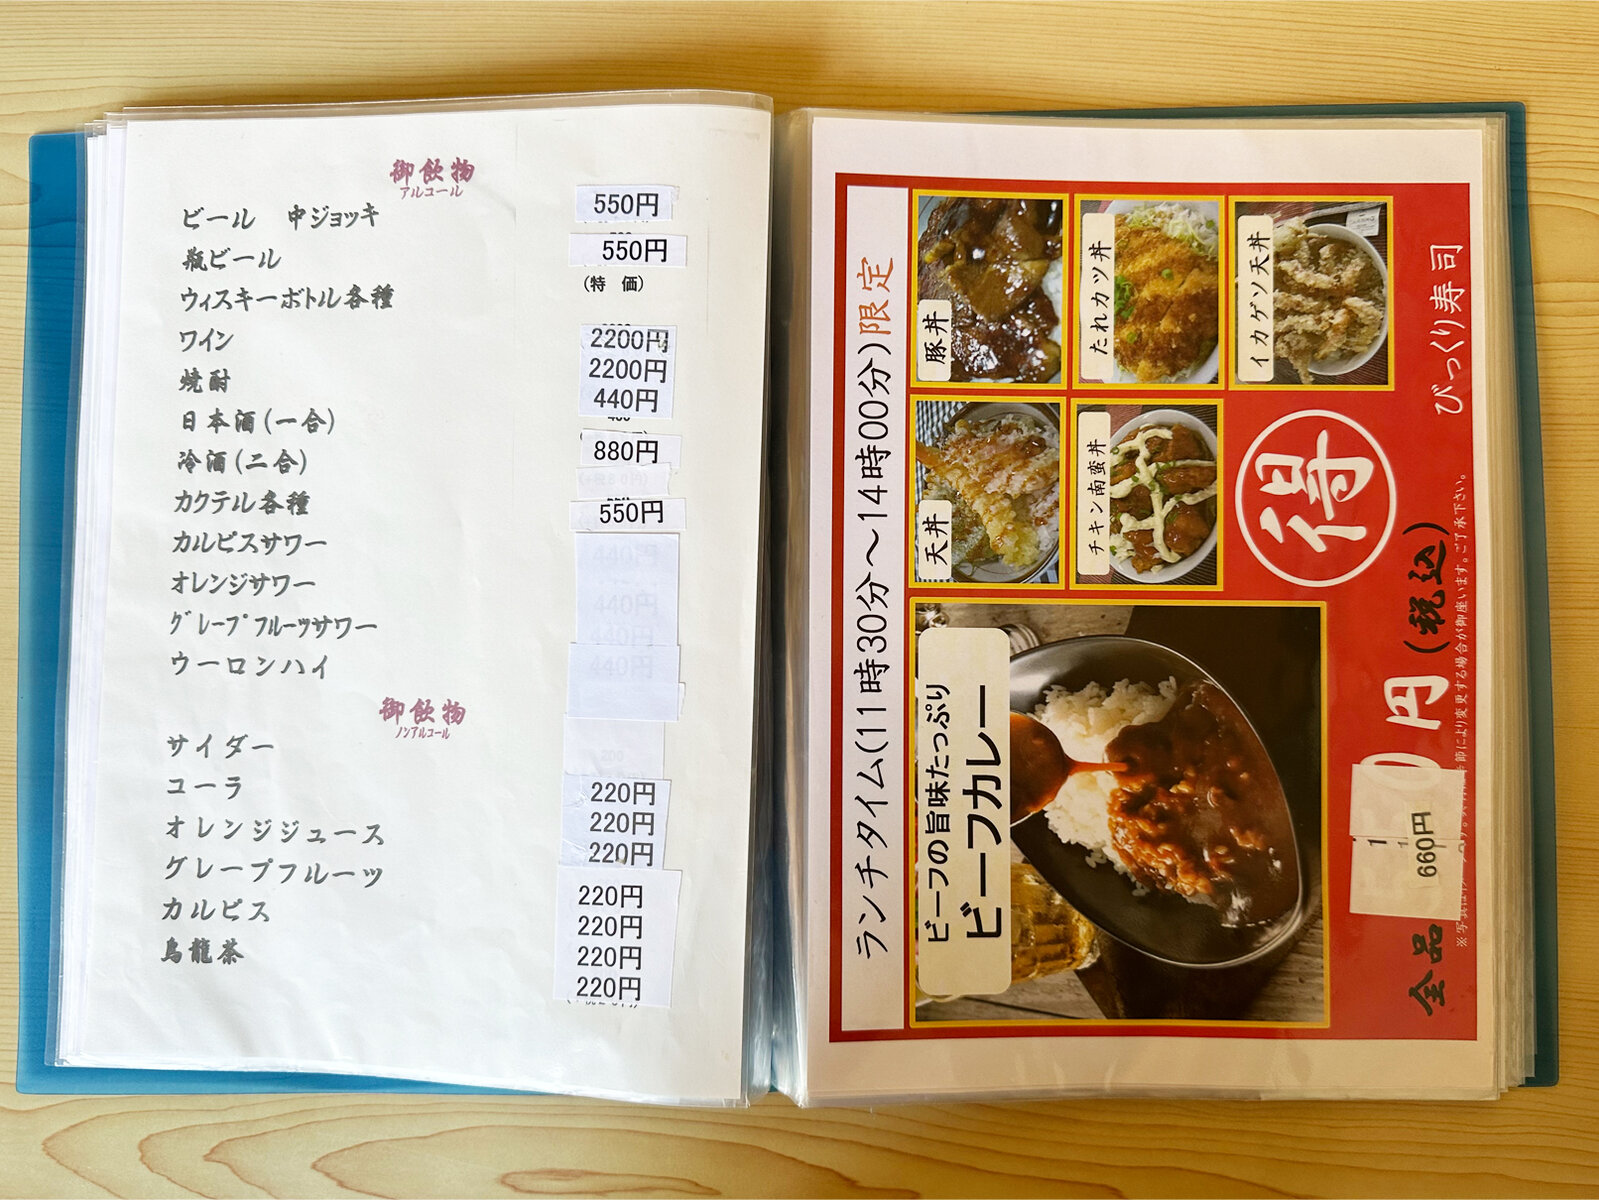 御飲物
アルコール
ビール 中ジョッキ 550円
瓶ビール 550円
ウィスキーボトル各種 (特 価)
ワイン 2200円
焼酎 2200円
日本酒(一合) 440円
冷酒(二合) 880円
カクテル各種 550円
カルピスサワー 440円
オレンジサワー 440円
グレープフルーツサワー 440円
ウーロンハイ 440円
御飲物
ノンアルコール
サイダー 220円
コーラ 220円
オレンジジュース 220円
グレープフルーツ 220円
カルピス 220円
烏龍茶 220円
220円
ランチタイム(11時30分～14時00分)限定
豚丼
たれカツ丼
イカゲソ天丼
天丼
チキン南蛮丼
ビーフの旨味たっぷり
ビーフカレー
びっくり寿司
得
全品
円(税込)
660円
節により変更する場合が御座います。ご了承下さい。